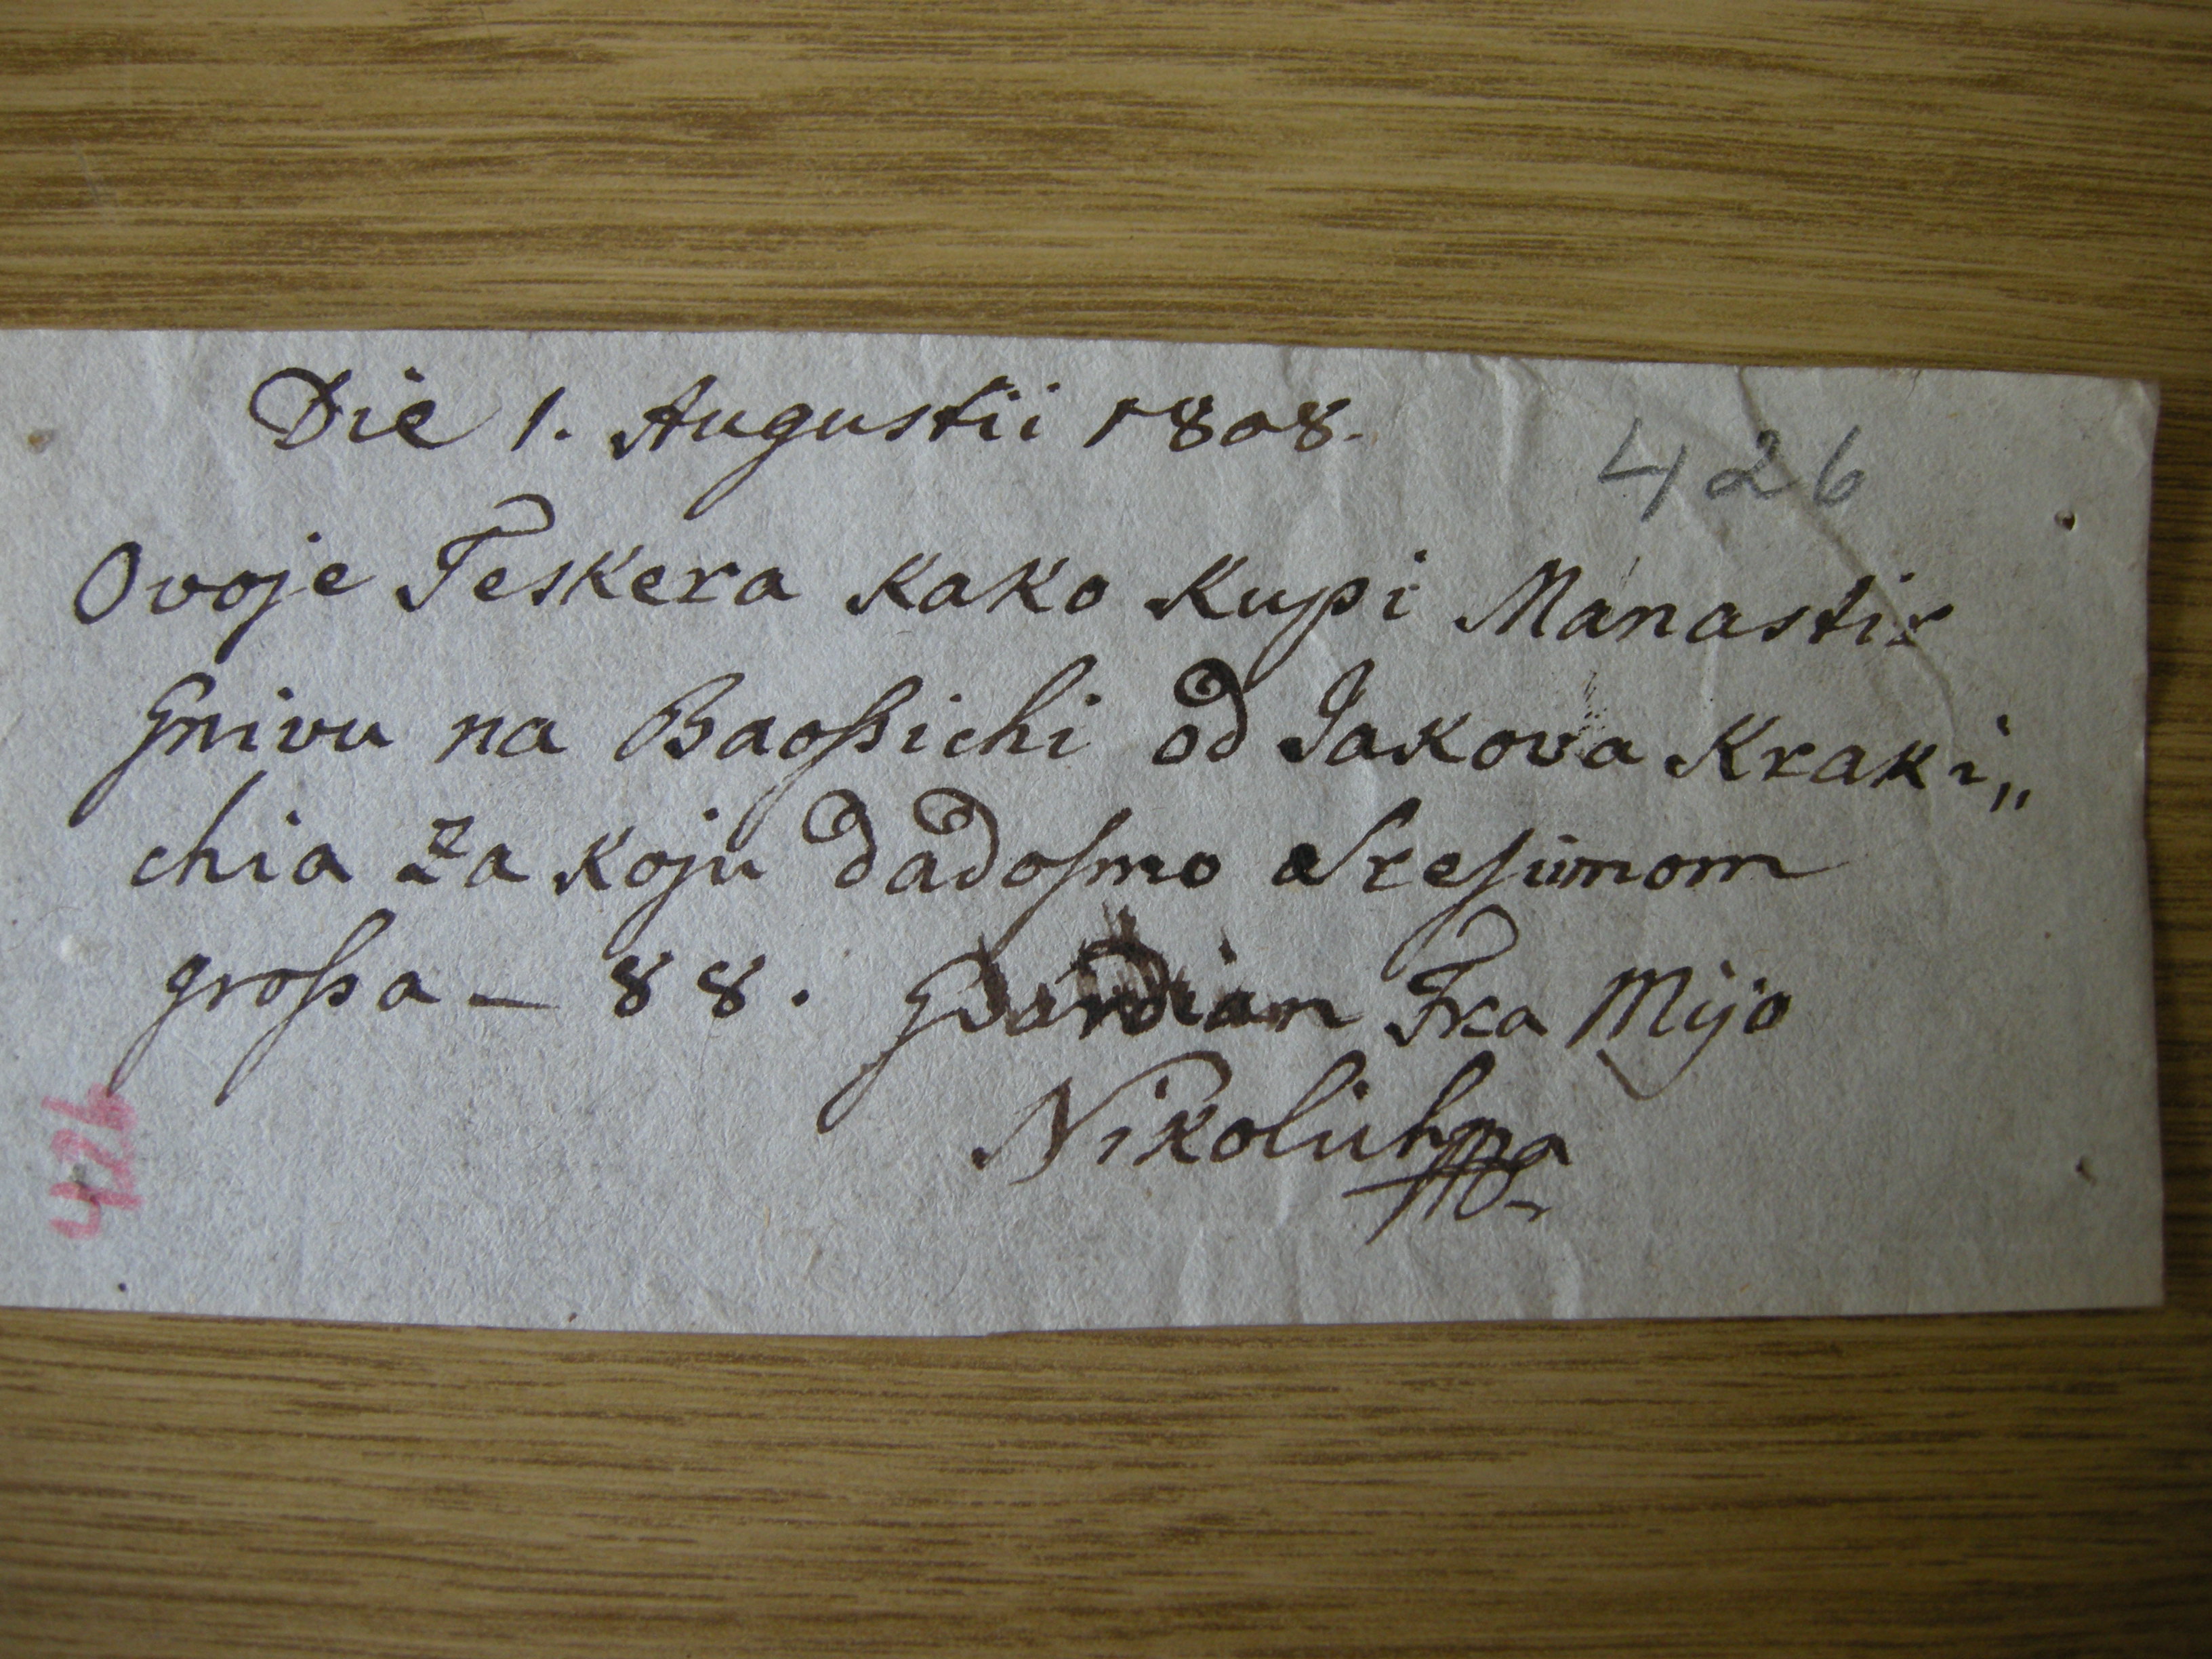 Die 1. Augustii 1808.
426
Ovoje Teskera kako kupi Manastir
Gnivu na Baoſsichi od Jakova Kraki„
chia za koju dadoſmo
groſsa – 88. Guardian Fra Mijo
426